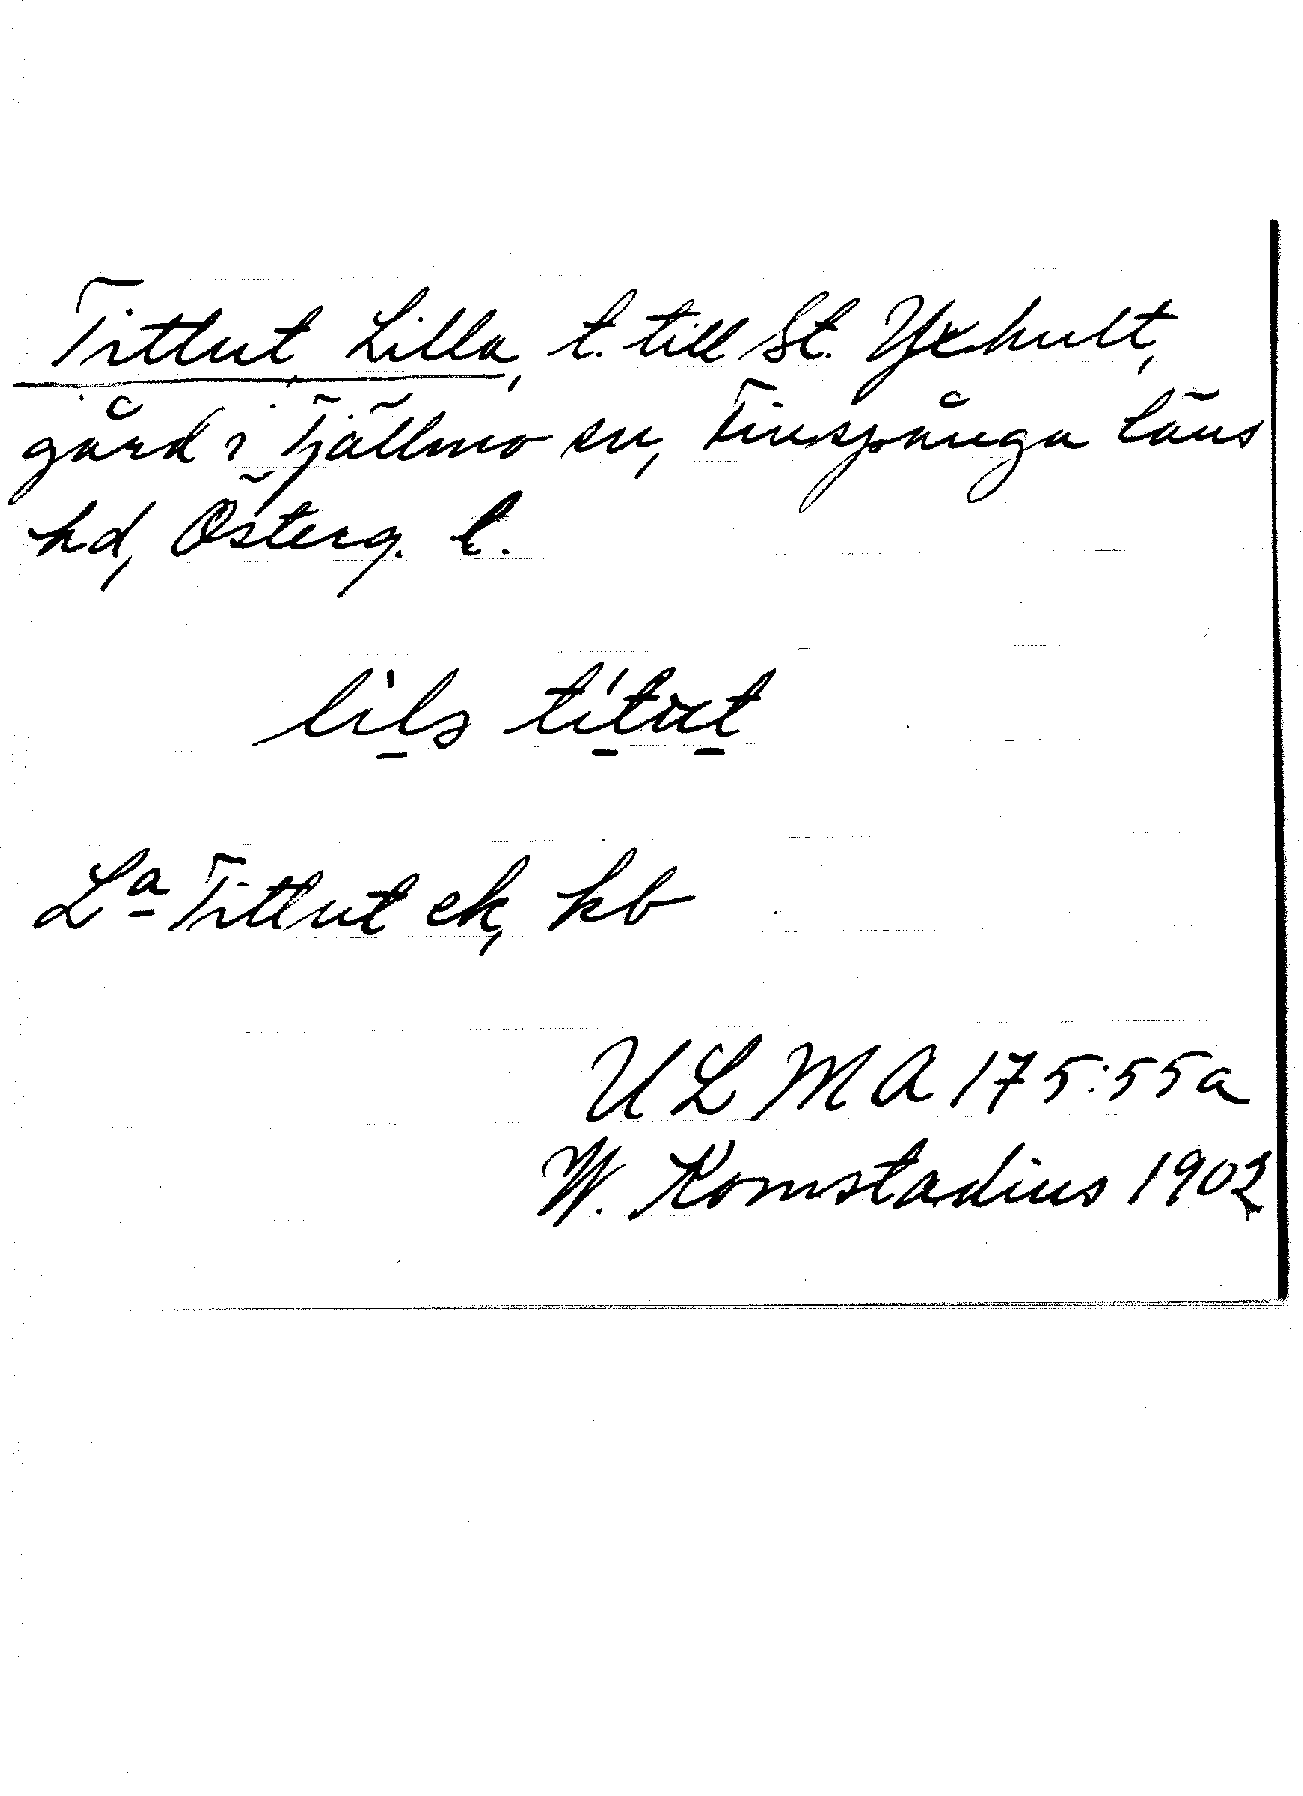 Tittut, Lilla, t. till St. Yxhult,
gård i Tjällmo sn, Finspånga läns
hd, Österg. l.
Lª Tittut ek, kb
ULMA 175:55a
W. Komstadius 1902